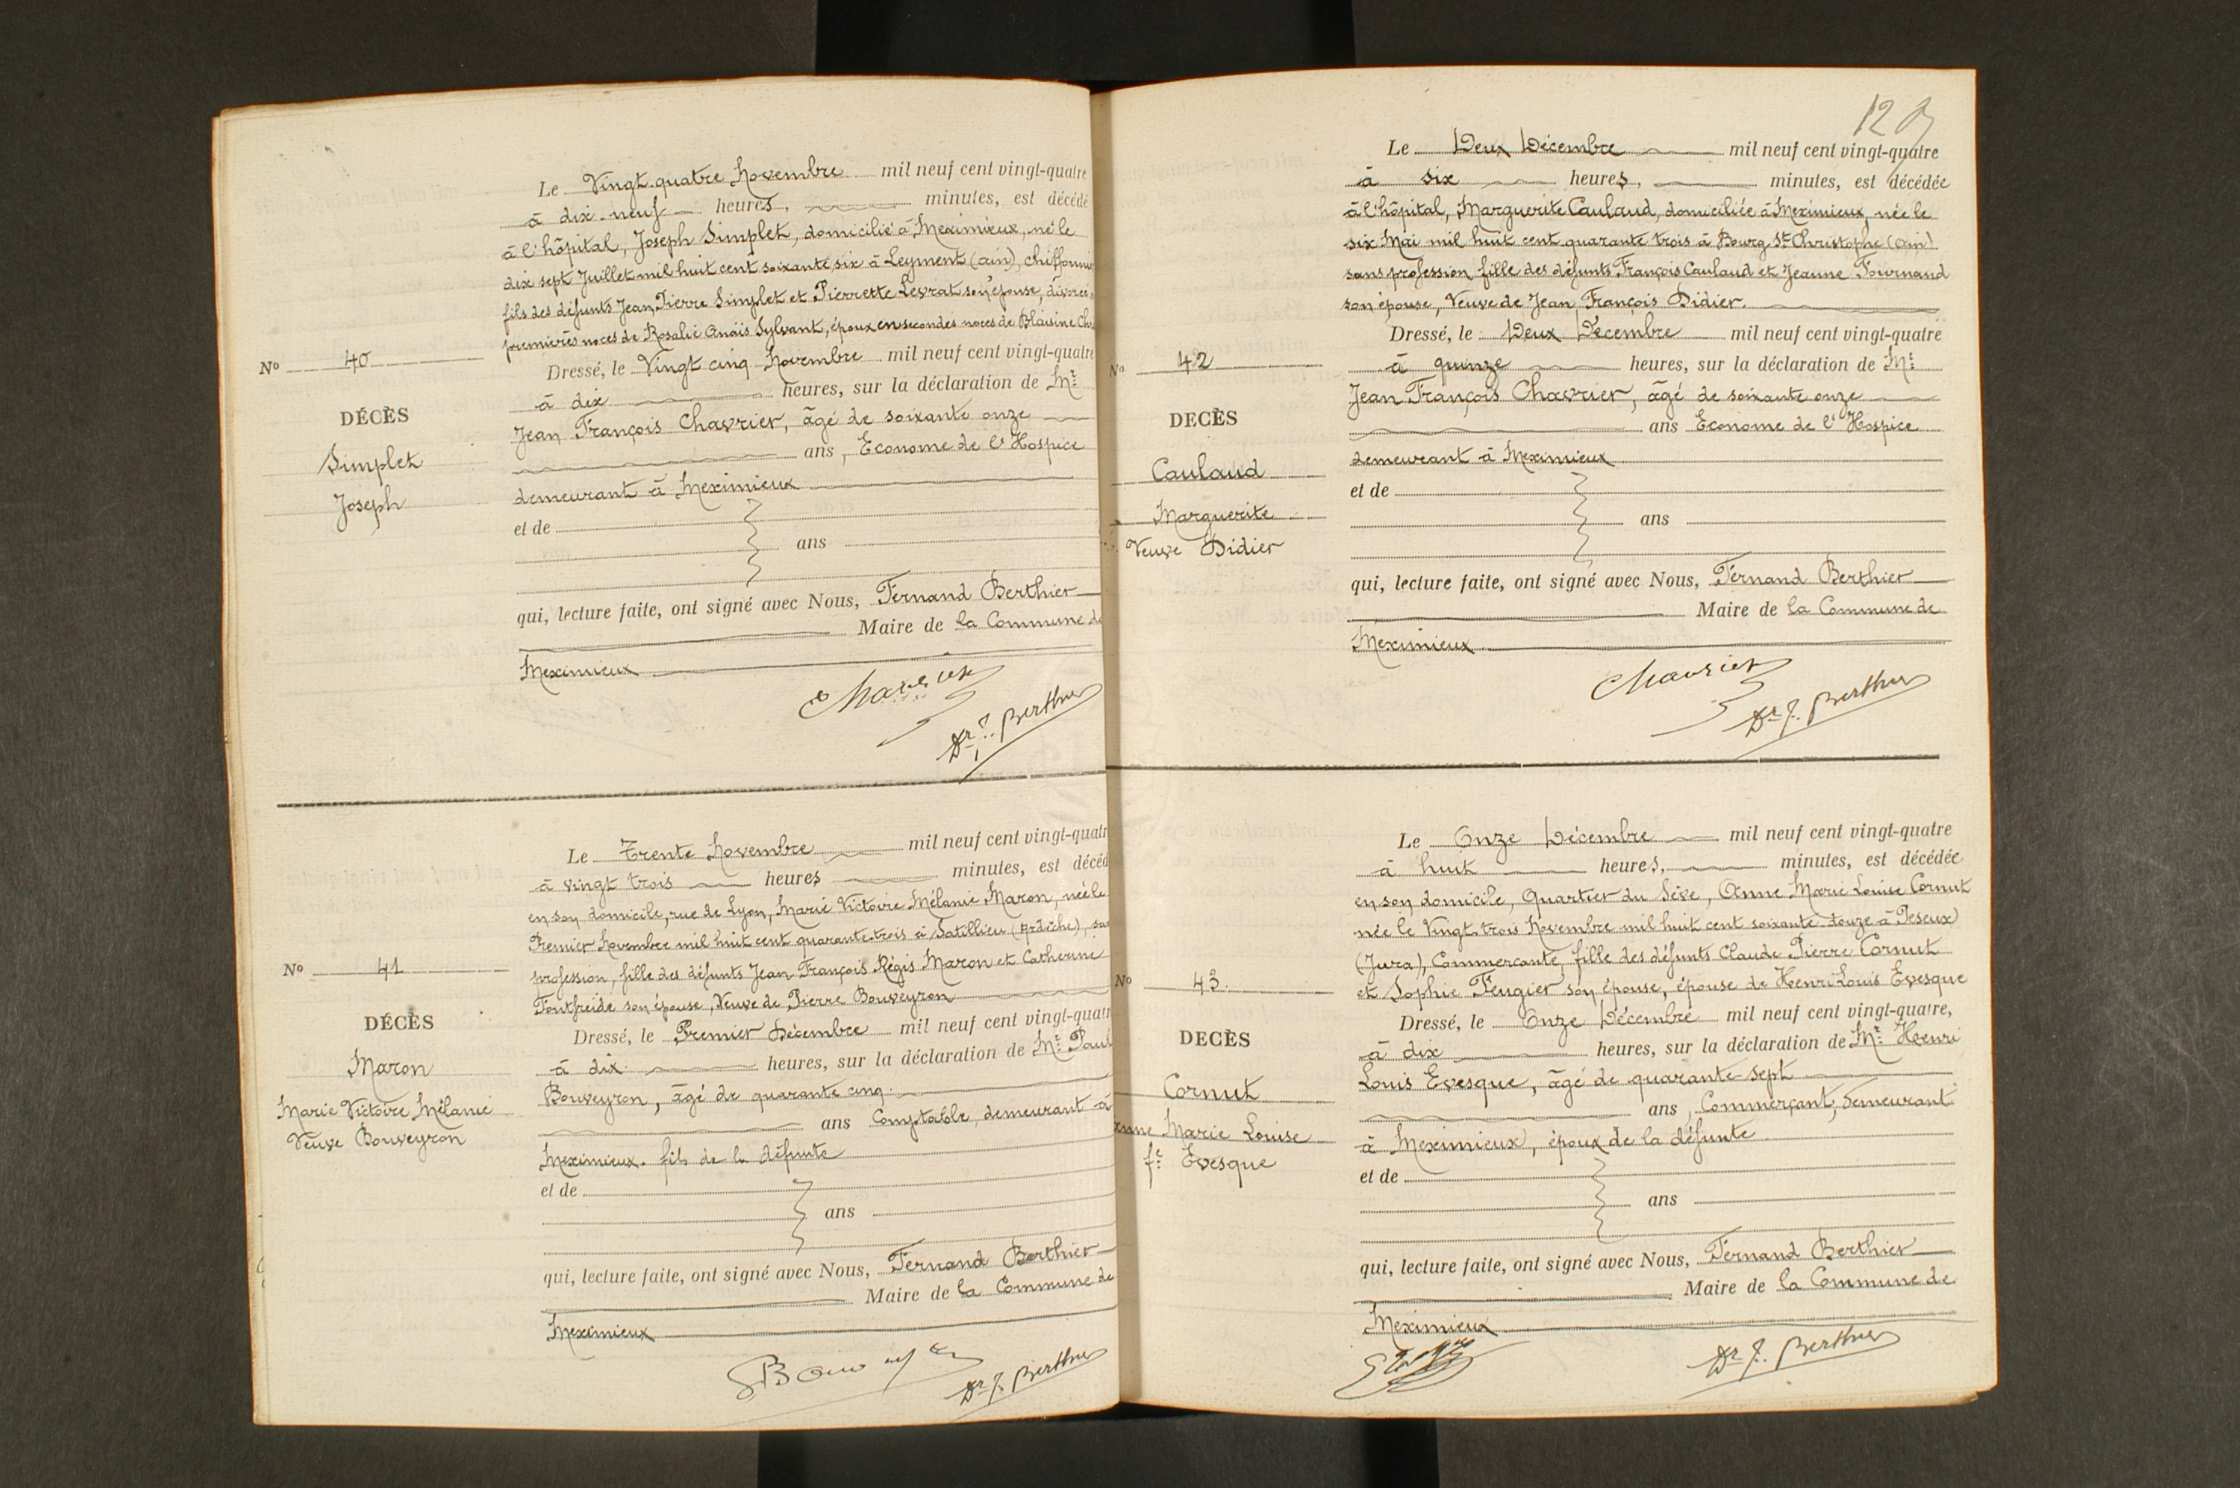 Le Vingt-quatre Novembre mil neuf cent vingt-quatre
à dix-neuf heures, minutes, est décédé
à l'hôpital, Joseph Simplet, domicilié à Meximieux, né le
dix sept Juillet mil huit cent soixante six à Leyment (Ain), chiffonnier
fils des défunts Jean Pierre Simplet et Pierrette Levrat son épouse, divorcé
premières noces de Rosalie Anaïs Sylvant, époux en secondes noces de Blaisine
No 40
Dressé, le Vingt cinq Novembre mil neuf cent vingt-quatre
à dix heures, sur la déclaration de Mr
DÉCÈS
Jean François Chavrier, âgé de soixante onze
ans, Econome de l'Hospice
Simplet
Joseph
demeurant à Meximieux
et de
ans
qui, lecture faite, ont signé avec Nous, Fernand Berthier
Maire de la Commune de
Meximieux
Chavrier
Dr F. Berthier
Le Trente Novembre mil neuf cent vingt-quatr
à vingt trois heures minutes, est décéd
en son domicile, rue de Lyon, Marie Victoire Mélanie Maron, née le
Premier Novembre mil huit cent quarante-trois à Satillieu (Ardèche), sa
No 41
profession, fille des défunts Jean François Régis Maron et Catherine
Fontfreide son épouse, Veuve de Pierre Bouveyron
DÉCÈS
Dressé, le Premier Décembre mil neuf cent vingt-quatr
à dix heures, sur la déclaration de Mr Paul
Maron
Bouveyron, âgé de quarante cinq
Marie Victoire Mélanie
Veuve Bouveyron
ans Comptable, demeurant à
Meximieux. fils de la défunte
et de
ans
qui, lecture faite, ont signé avec Nous, Fernand Berthier
Maire de la Commune de
Meximieux
Dr F. Berthier
Le Deux Décembre mil neuf cent vingt-quatre
à six heures, minutes, est décédée
à l'hôpital, Marguerite Caulaud, domiciliée à Meximieux, née le
six Mai mil huit cent quarante trois à Bourg St Christophe (Ain)
sans profession, fille des défunts François Caulaud et Jeanne Fournand
son épouse, Veuve de Jean François Didier.
No 42
Dressé, le Deux Décembre mil neuf cent vingt-quatre
à quinze heures, sur la déclaration de Mr
DECÈS
Jean François Chavrier, âgé de soixante onze
ans Econome de l'Hospice
Caulaud
demeurant à Meximieux
et de
Marguerite
ans
Veuve Didier
qui, lecture faite, ont signé avec Nous, Fernand Berthier
Maire de la Commune de
Meximieux
Chavrier
Dr F. Berthier
Le Onze Décembre mil neuf cent vingt-quatre
à huit heures, minutes, est décédée
en son domicile, Quartier du Sève, Anne Marie Louise Cornut
née le Vingt-trois Novembre mil huit cent soixante-douze à Peseux
(Jura), Commerçante, fille des défunts Claude Pierre Cornut
No 43.
et Sophie Feugier son épouse, épouse de Henri Louis Evesque
DECÈS
Dressé, le Onze Décembre mil neuf cent vingt-quatre,
à dix heures, sur la déclaration de Mr Henri
Cornut
Louis Evesque, âgé de quarante sept
ans, Commerçant, demeurant
Anne Marie Louise
fe Evesque
à Meximieux, époux de la défunte
et de
ans
qui, lecture faite, ont signé avec Nous, Fernand Berthier
Maire de la Commune de
Meximieux
Dr F. Berthier